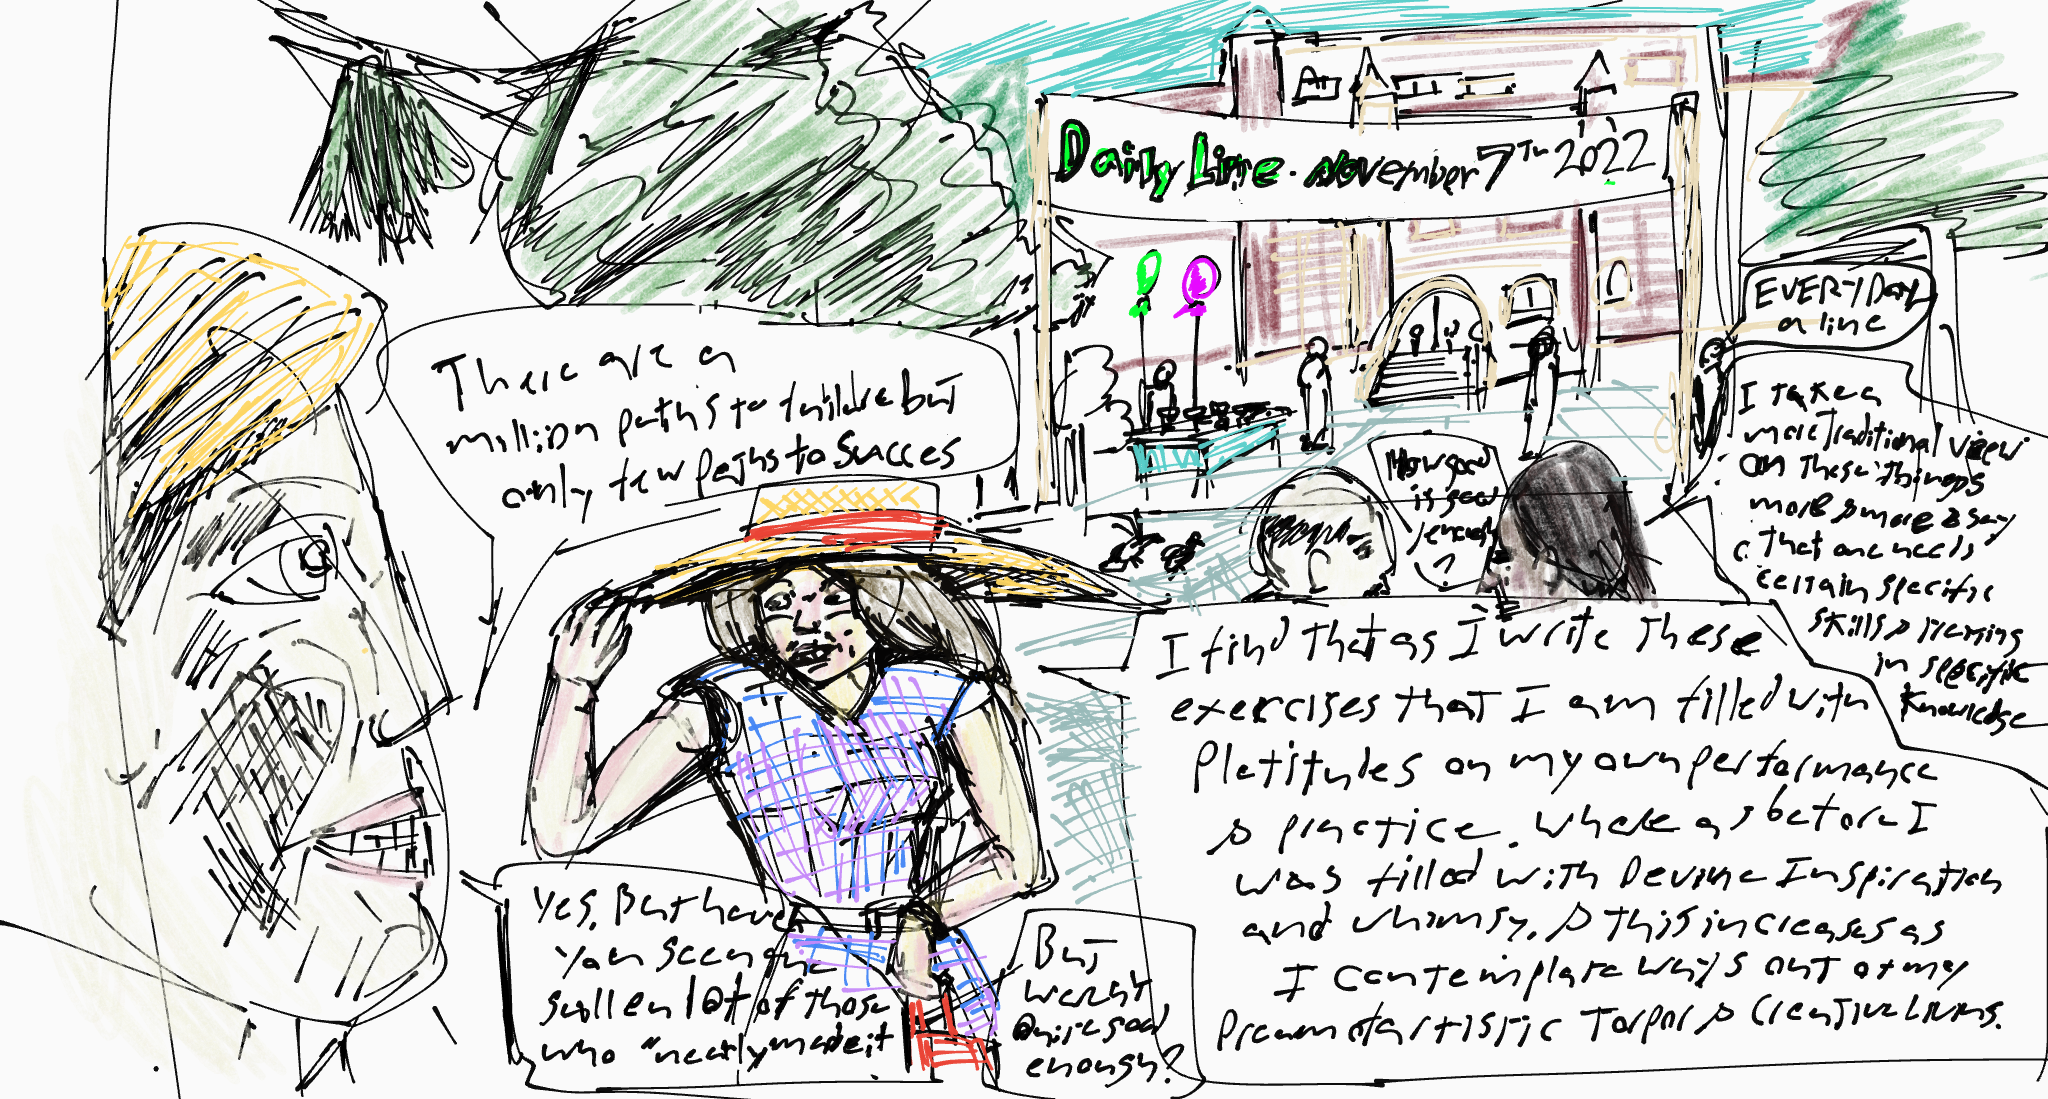 Daily Line. November 7th 2022
EVERYDay
a line
There are a
million paths to failure but
only few paths to Succes
I take a
more traditional view
on these things
more & more & say
that one needs
certain specific
skills & training
in specific
knowledge
How good
is good
enough
?
I find that as I write these
exercises that I am filled with
Platitudes on my own performance
& practice. Where as before I
was filled with Devine Inspiration
and whimsy, & this increases as
I contemplate ways out of my
artistic Torpor & Creative Living.
Yes, But have
you seen the
sullen lot of those
who "nearly made it
But
wasn't
Quite good
enough?